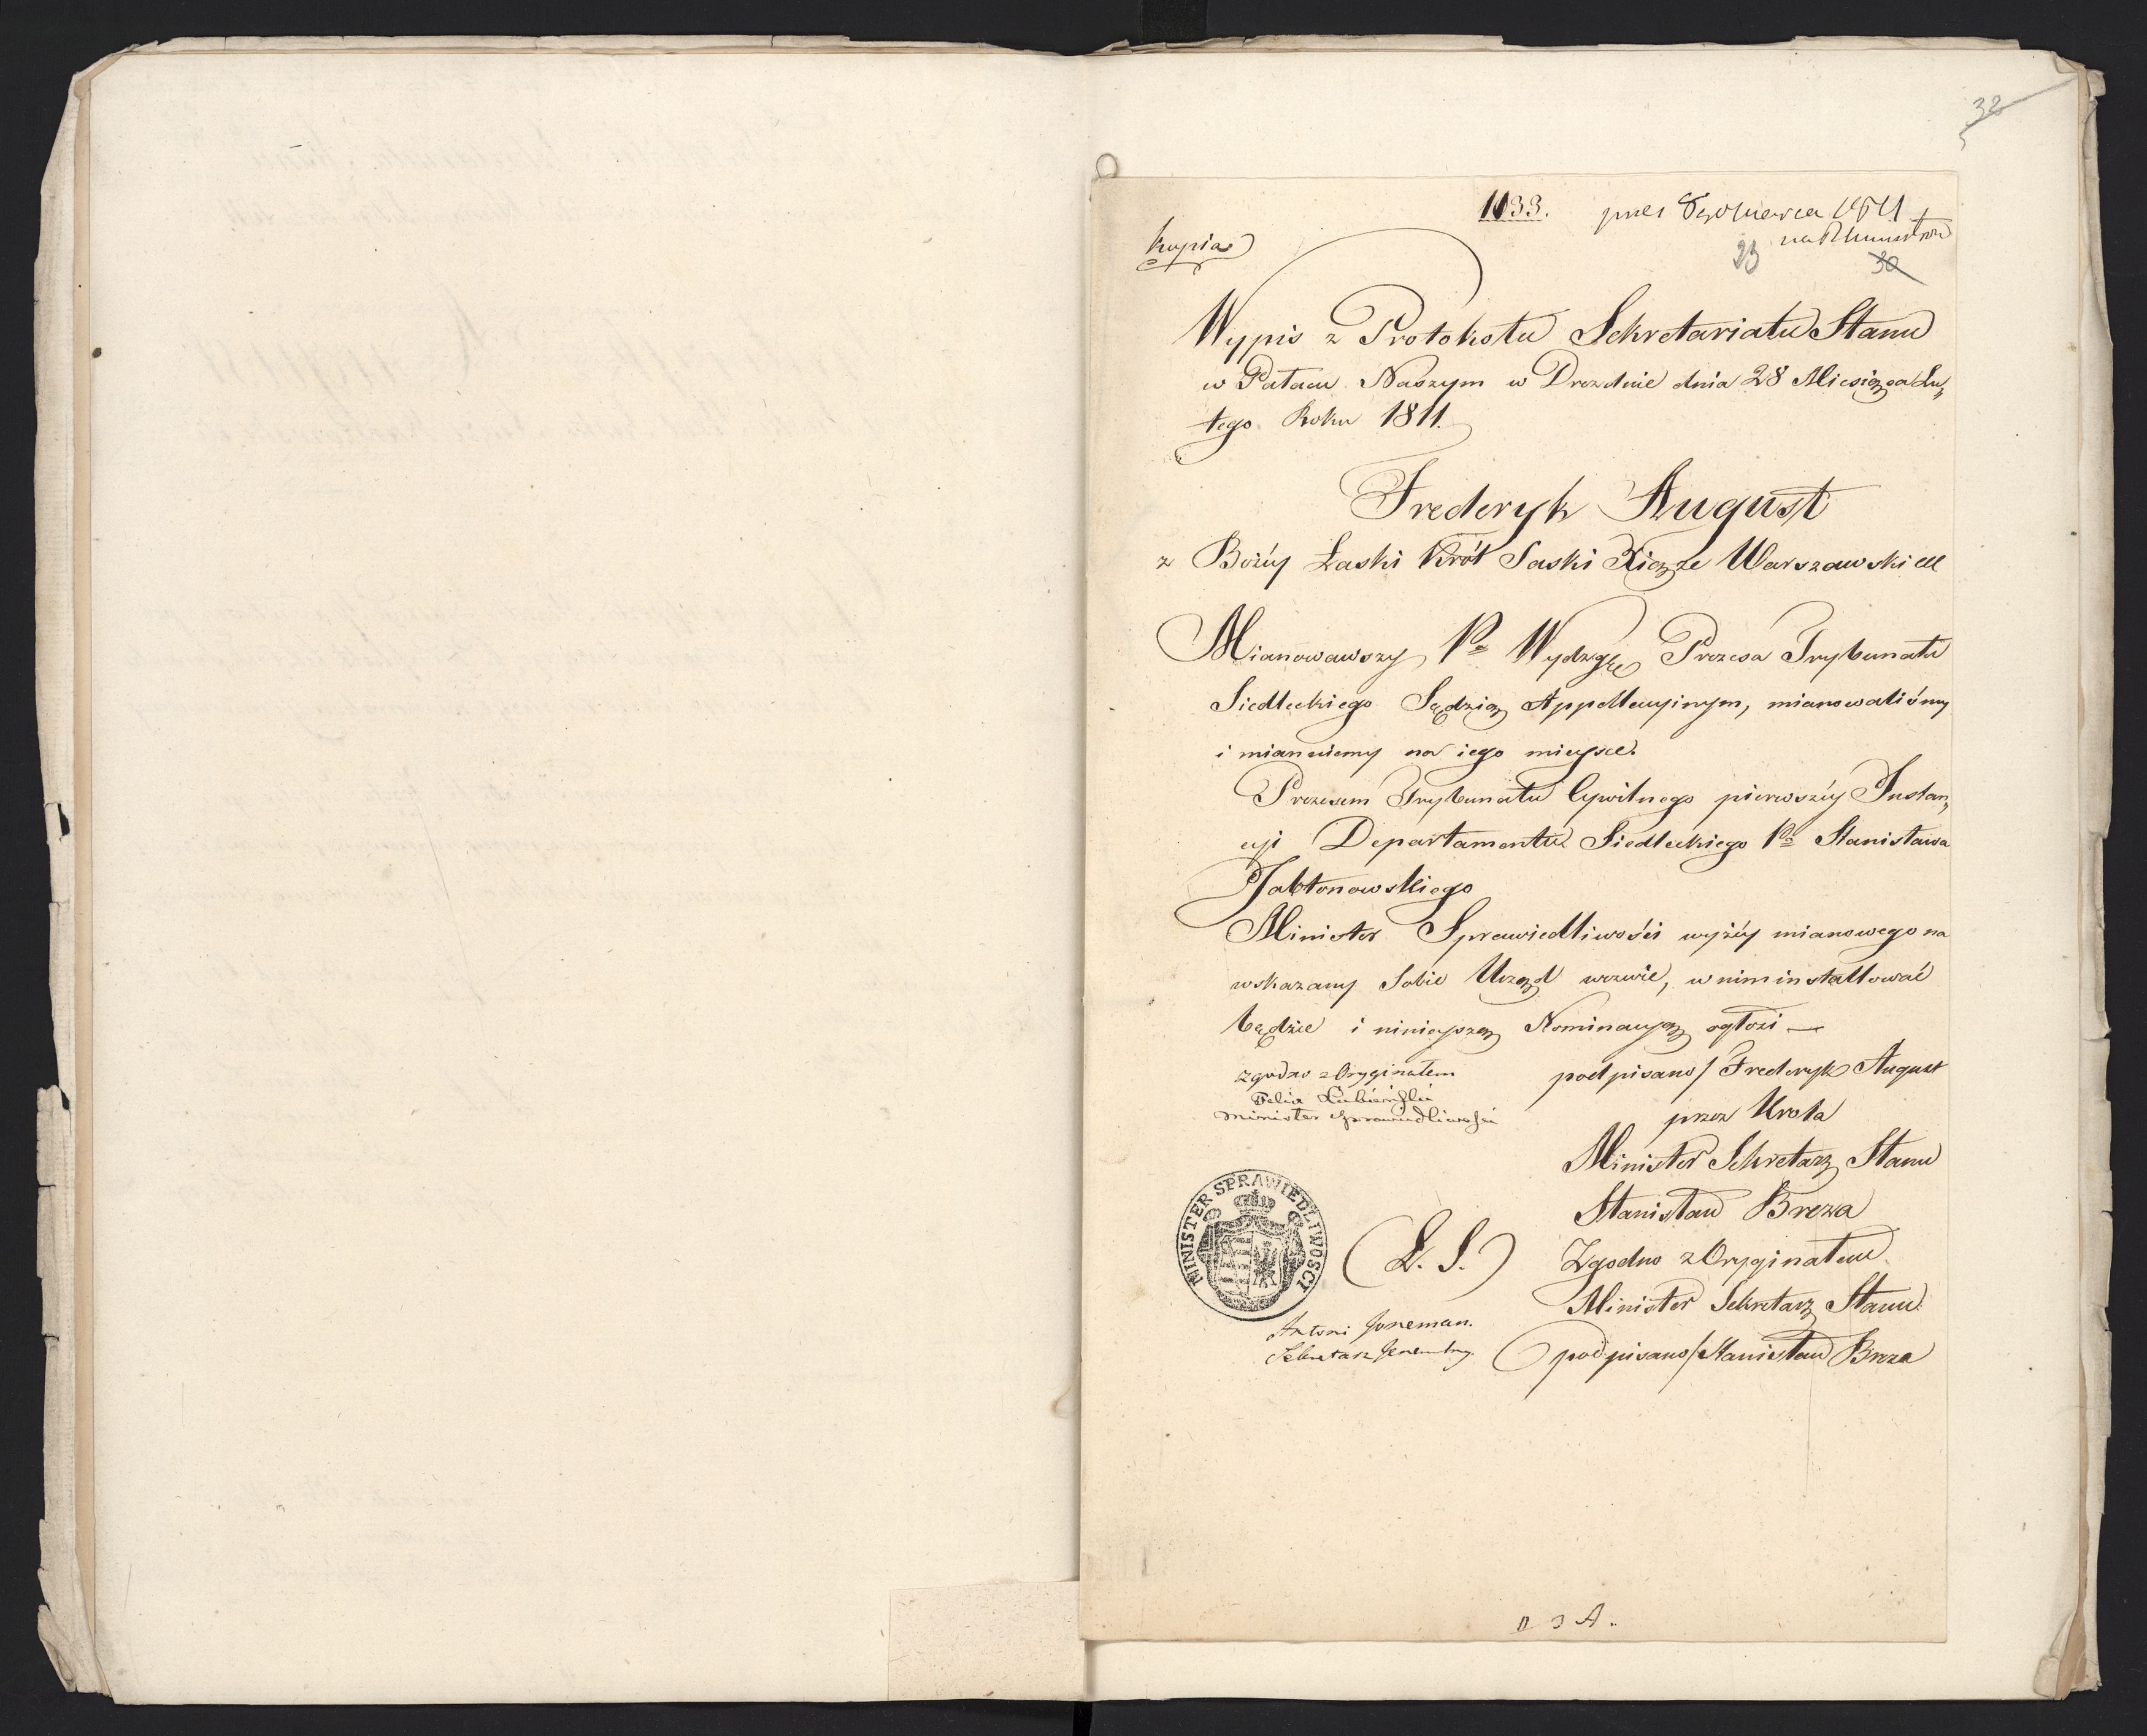 32
1133. 1811
Kopia
23 30
Wypis z Protokołu Sekretariatu Stanu
w Pałacu Naszym w Dreźnie dnia 28 Miesiąca Lu„
tego Roku 1811.
Frederyk August
z Bożéy Łaski Król Saski Xiąże Warszawski &&
Mianowawszy Pa Wydzgę Prezesa Trybunału
Siedleckiego Sędzią Appellacyinym, mianowaliśmy
i mianuiemy na iego mieysce.
Prezesem Trybunału Cywilnego pierwszéy Instan„
cyi Departamentu Siedleckiego Pa Stanisława
Jabłonowskiego
Minister Sprawiedliwości wyżéy mianowego na
wskazany Sobie Urząd wezwie, w nim installować
będzie i ninieyszą Nominacyą ogłosi —
zgodno z Oryginałem
Felix Łubieński
Minister Sprawiedliwości
podpisano/ Frederyk August
przez Króla
Minister Sekretarz Stanu
Stanisław Breza
(L. S.)
Zgodno z Oryginałem
Minister Sekretarz Stanu
podpisano/ Stanisław Breza
MINISTER SPRAWIEDLIWOSCI
Antoni
Sekretarz Jeneralny.